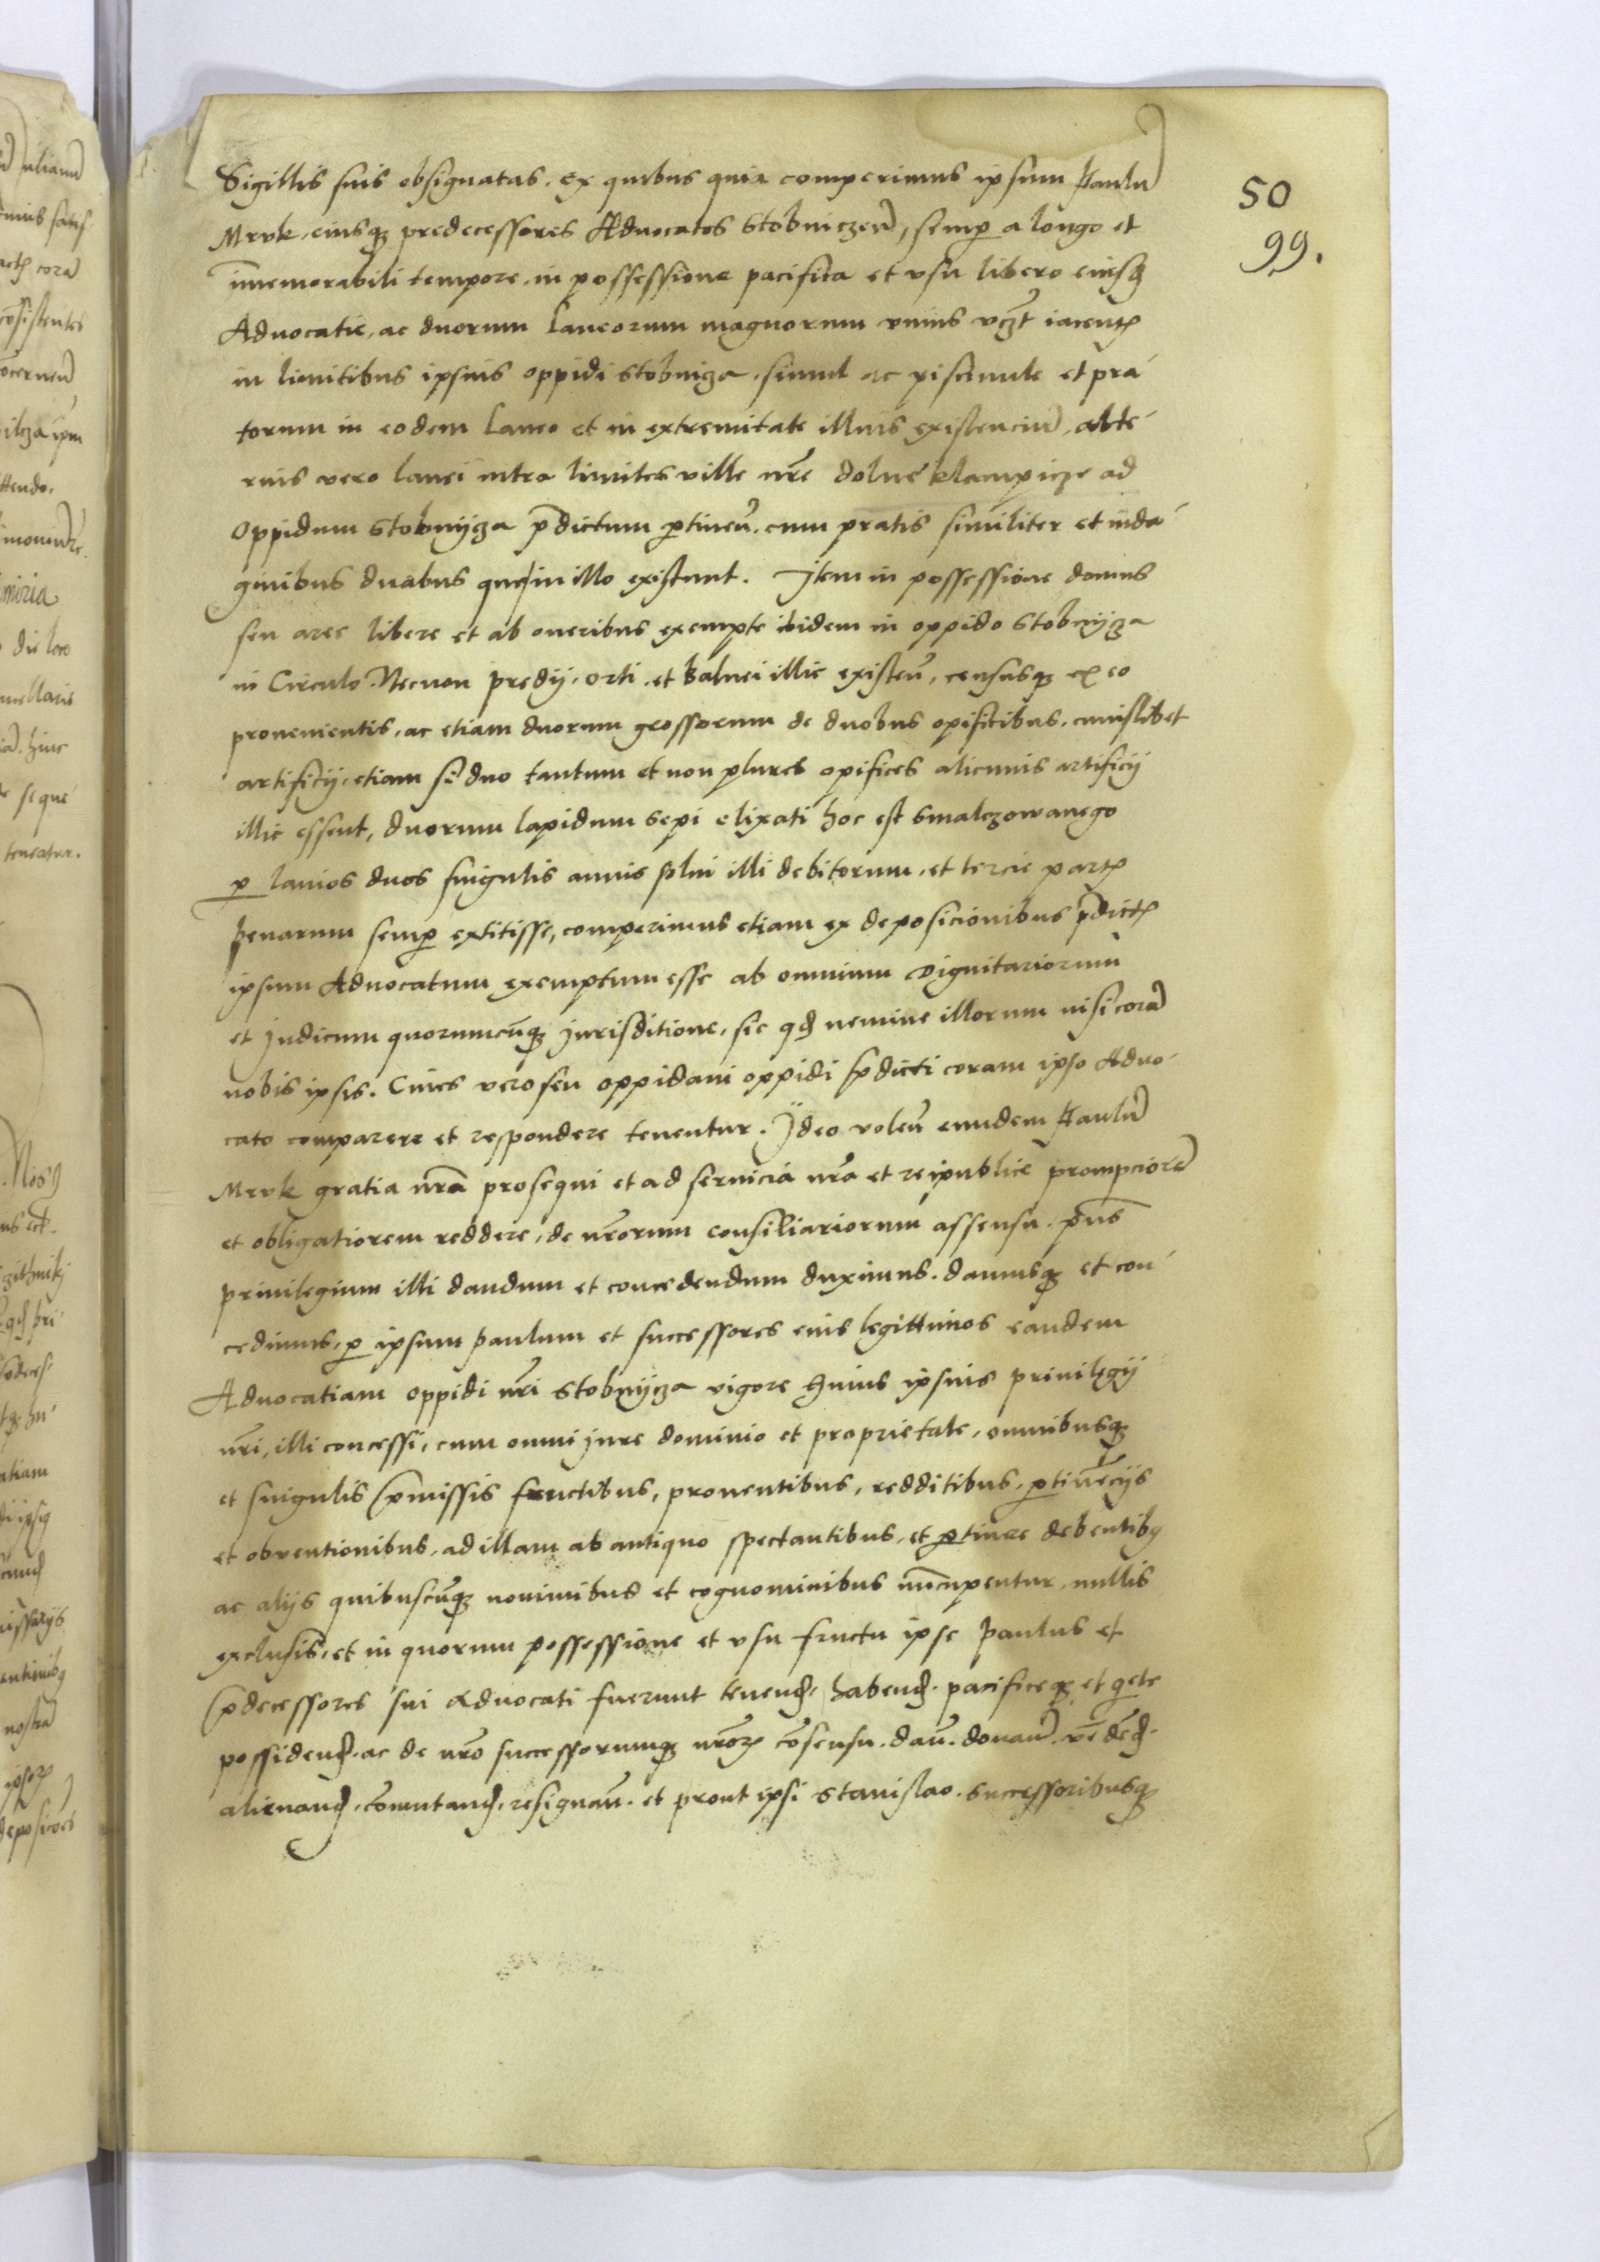 50
99.
Sigillis suis obsignatas. ex quibus quia comperimus ipsum Paulu͂
Mrvk, eiusqꝫ predecessores Aduocatos Stobniczen͂, semꝑ a longo et
im̄emorabili tempore, in possessione pacifica et vsu libero eiusdꝫ
Aduocatie, ac duorum Laneorum magnorum vnius vcꝫt iacentꝭ
in limitibus ipsius oppidi Stobnicza. simul ac piscinule et pra-
torum in eodem Laneo et in extremitate illius existenciu͂, alte-
rius vero lanei intra limites ville nr̄e dolne klampicze ad
Oppidum Stobnycza p̄dictum ꝑtineñ. cum pratis similiter et inda-
ginibus duabus que in illo existunt. Item in possessione domus
seu aree libere et ab oneribus exempte ibidem in oppido Stobnycza
in Circulo. Necnon predij. orti. et Balnei illic existeñ, censusqꝫ ex eo
prouenientis. ac etiam duorum grossorum de duobus opificibus. cuiuslibet
artificij. etiam si duo tantum et non plures opifices alicuius artificij
illic essent, duorum lapidum sepi elixati hoc est smalczowanego
ꝑ lanios duos singulis annis solui illi debitorum. et tercie partꝭ
penarum semꝑ extitisse, comperimus etiam ex deposicionibus p̄dictꝭ
ipsum Aduocatum exemptum esse ab omnium Dignitariorum
et Judicum quorumcu͂qꝫ Jurisditione, sic qd nemine illorum nisi cora͂
nobis ipsis. Ciues vero seu oppidani oppidi p̄dicti coram ipso Aduo-
cato comparere et respondere tenentur. Ideo voleñ eundem Paulu͂
Mrvk gratia nr̄a prosequi et ad seruicia nr̄a et reipublice prompciore͂
et obligatiorem reddere, de nr̄orum consiliariorum assensu. p̄ns
priuilegium illi dandum et concedendum duximus. damusqꝫ et con-
cedimus, ꝑ ipsum Paulum et successores eius legittimos eandem
Aduocatiam oppidi nr̄i Stobnycza vigore huius ipsius priuilegij
nr̄i, illi concessi, cum omni jure dominio et proprietate, omnibusqꝫ
et singulis p̄missis fructibus, prouentibus, redditibus, ꝑtine͂cijs
et obuentionibus, ad illam ab antiquo spectantibus, et ꝑtinere debentibꝰ
ac alijs quibuscu͂qꝫ nominibus et cognominibus nu͂cupentur, nullis
exclusis, et in quorum possessione et vsu fructu ipse Paulus et
p̄decessores sui Aduocati fuerunt tenend. habend. pacificeqꝫ et qiete
possidend. ac de nr̄o successorumqꝫ nr̄orꝫ co͂sensu. dañ. donañ. ve͂dend.
alienand, co͂mutand, resignañ. et prout ipsi Stanislao. successoribusqꝫ